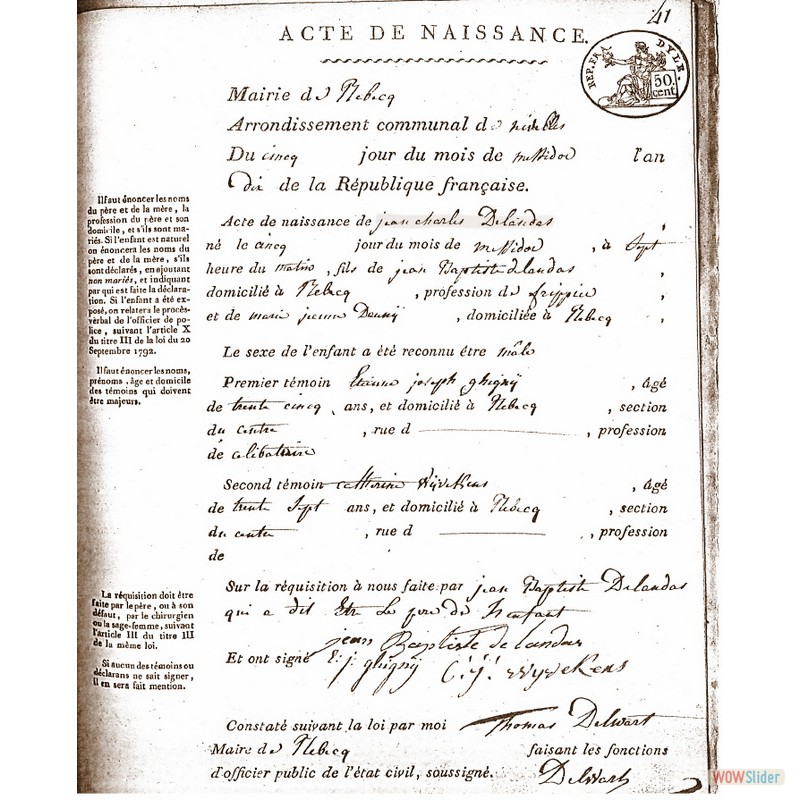 41
ACTE DE NAISSANCE.
REP. FRA. DYLE.
50. cent.
Mairie de Rebecq
Arrondissement communal de nivelles
Du cinq jour du mois de messidor l'an
dix de la République française.
Il faut énoncer les noms
du père et de la mère, la
profession du père et son
domicile, et s'ils sont ma-
riés. Si l'enfant est naturel
on énoncera les noms du
père et de la mère, s'ils
sont déclarés, en ajoutant
non mariés, et indiquant
par qui est faite la déclara-
tion. Si l'enfant a été ex-
posé, on relatera le procès-
verbal de l'officier de po-
lice, suivant l'article X
du titre III de la loi du 20
Septembre 1792.
Il faut énoncer les noms,
prénoms, âge et domicile
des témoins qui doivent
être majeurs.
Acte de naissance de jean charles Delandas,
né le cinq jour du mois de messidor, à sept
heure du matin, fils de jean Baptiste delandas,
domicilié à Rebecq, profession de frippier,
et de marie jeanne, domiciliée à Rebecq,
Le sexe de l'enfant a été reconnu être mâle
Premier témoin Etienne joseph ghigny, âgé
de trente cinq, ans, et domicilié à Rebecq, section
du centre, rue d, profession
de celibataire
Second témoin catherine Wyvekens, âgé
de trente sept ans, et domicilié à Rebecq, section
du centre, rue d, profession
de
La réquisition doit être
faite par le père, ou à son
défaut, par le chirurgien
ou la sage-femme, suivant
l'article III du titre III
de la même loi.
Si aucun des témoins ou
déclarans ne sait signer,
il en sera fait mention.
Sur la réquisition à nous faite par jean Baptiste Delandas
qui a dit Etre Le pere de l'enfant
jean Baptiste de landas
Et ont signé E: j: ghigny C: j: wyvekens
Constaté suivant la loi par moi Thomas Delwart
Maire de Rebecq faisant les fonctions
d'officier public de l'état civil, soussigné. Delwart
WOWSlider